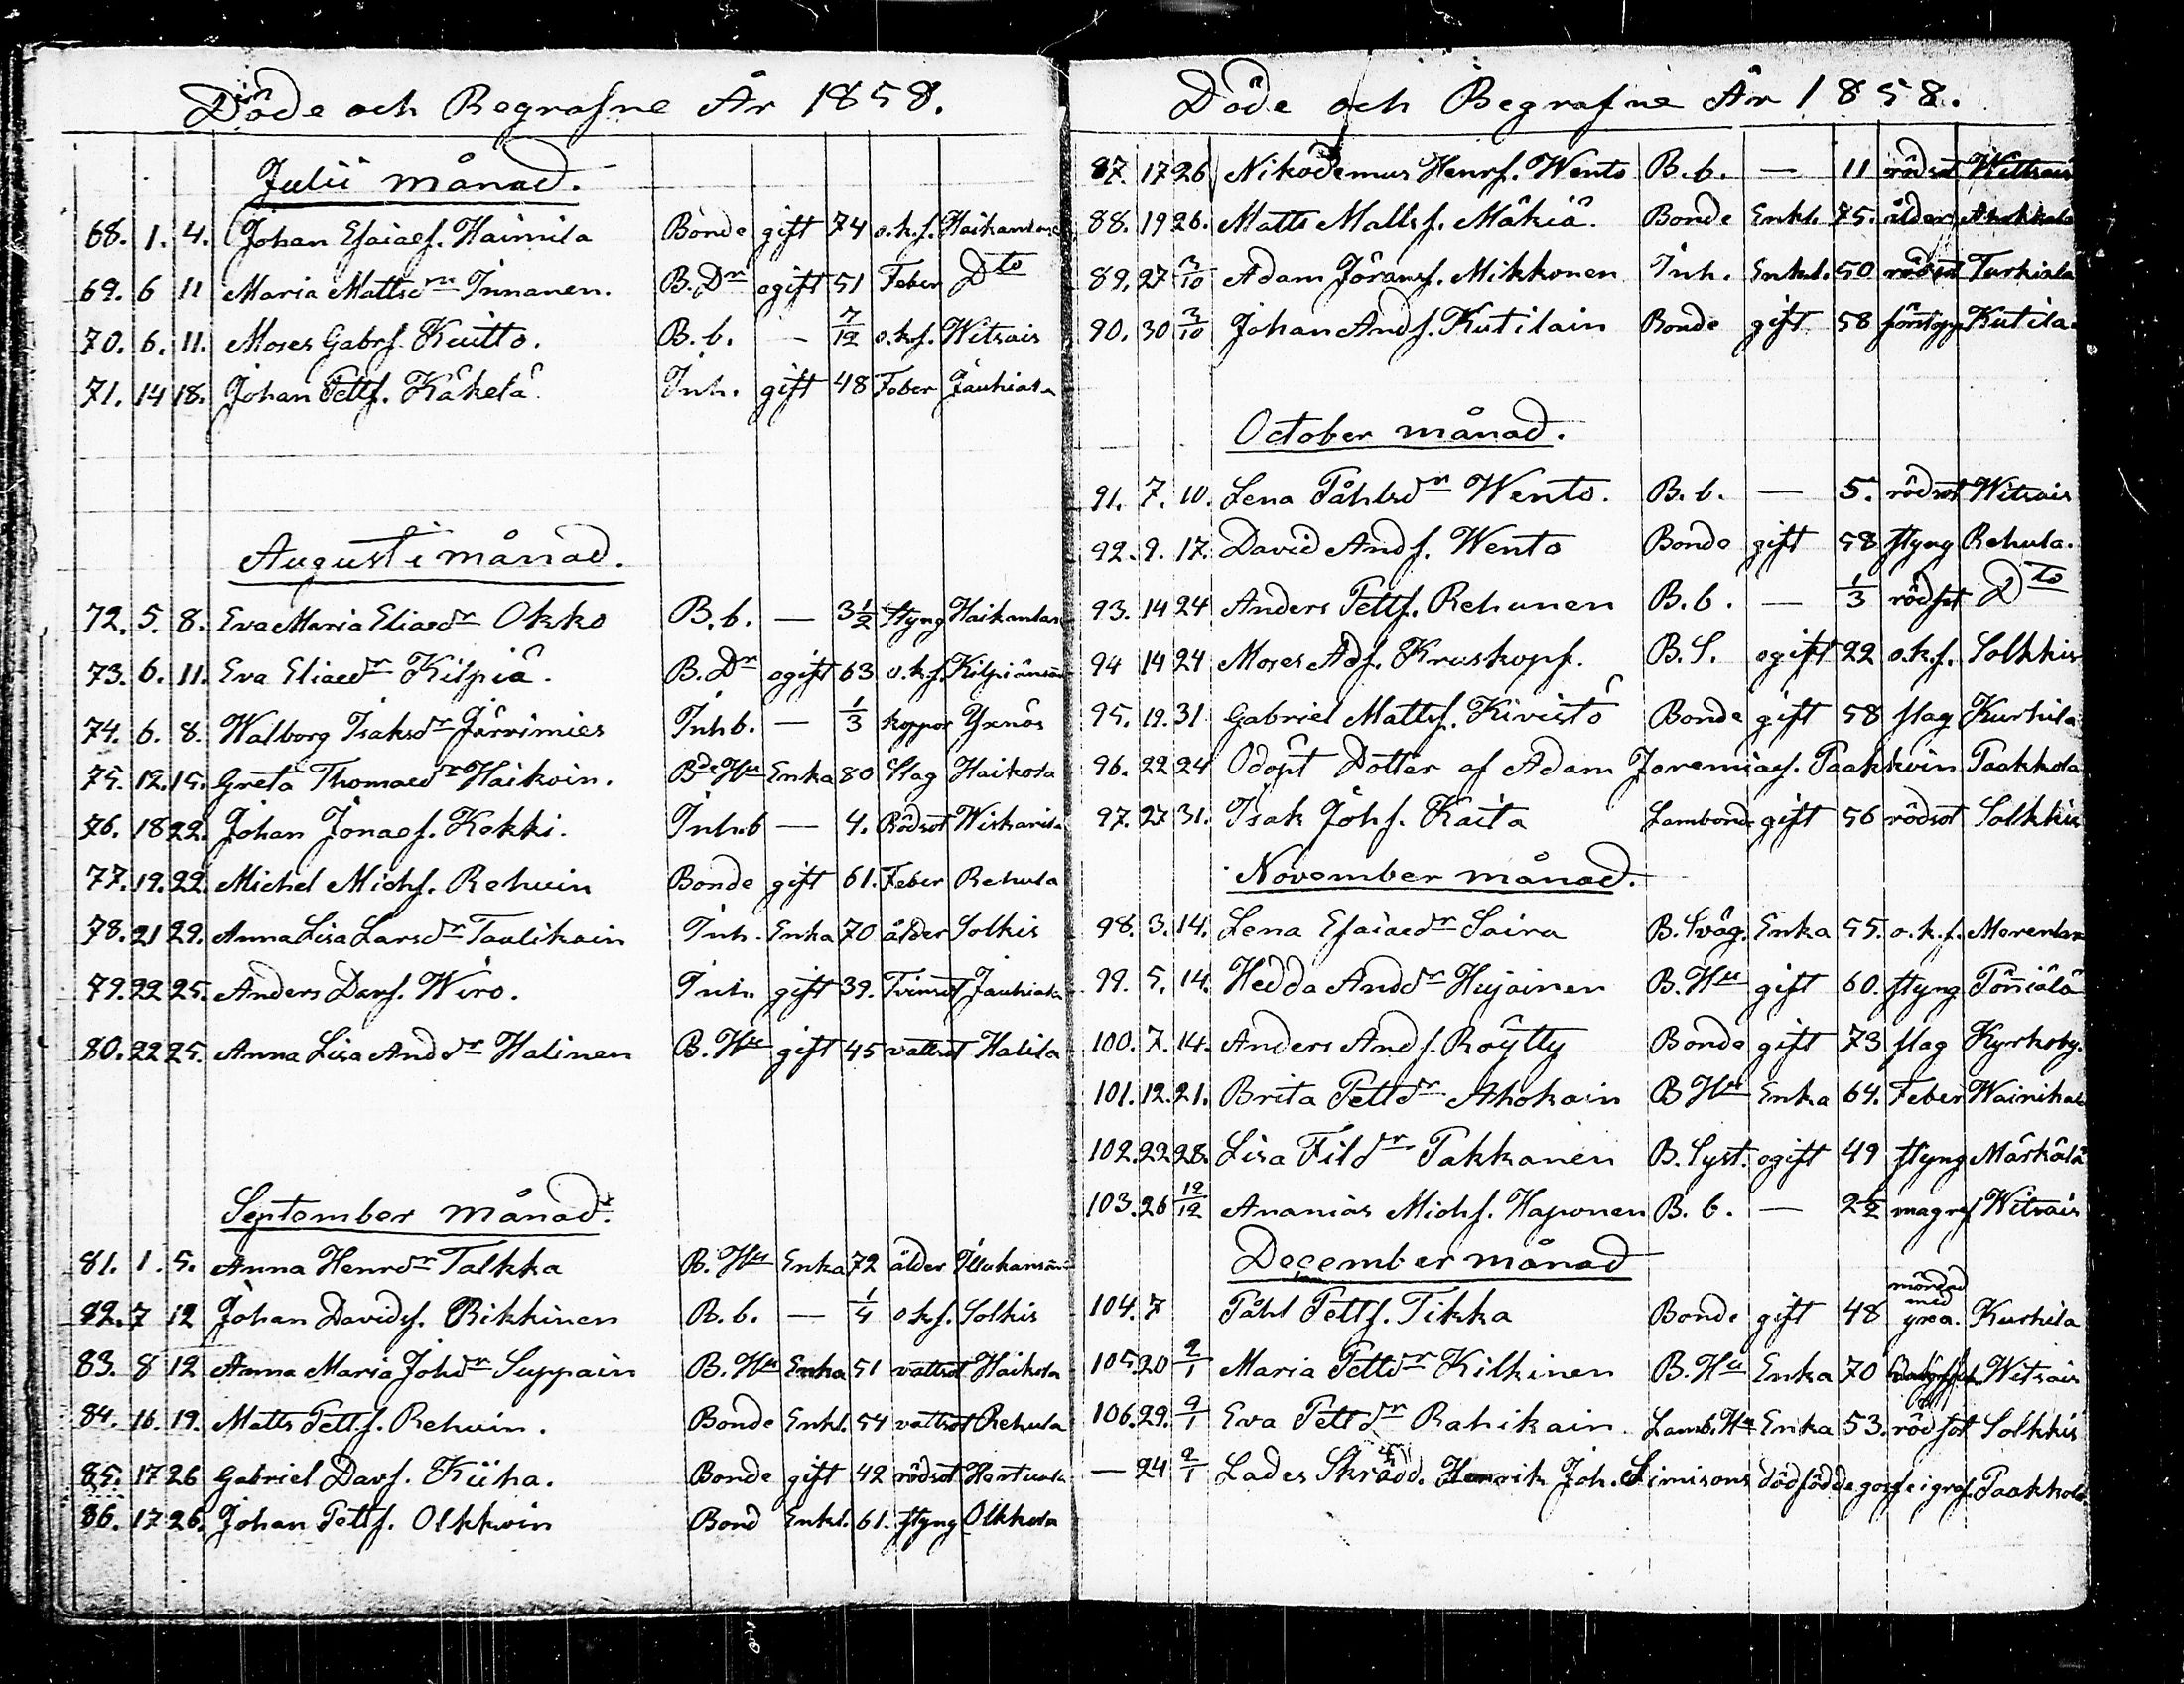 Döde och Begrafne År 1858.
Julii månad.
68. 1. 4. Johan Esaiaes. Haimila Bonde gift 74 o.k.s. Haikanlax
69. 6 11 Maria Mattsdr Innanen. B. Dr ogift 51 Feber Dto
70. 6. 11. Moses Gabrs. Kuitto. B. b. - 7/12 o.k.s. Witsais
71. 14 18. Johan Petts. Käkelä. Inh. gift 48 Feber Jauhiala
Augusti månad.
72. 5. 8. Eva Maria Eliaedr Okko B. b. — 3 1/2 styng Haikanlax
73. 6. 11. Eva Eliaedr Kilpiä. B. Dr ogift 63 o.k.s. Kilpiänsaari
74. 6. 8. Walborg Isaksdr Järvimies Inh b. — 1/3 koppor Yxnös
75. 12. 15. Greta Thomaedr Haikoin. Bde Hu Enka 80 Slag Haikola
76. 18 22. Johan Jonaes. Kekki. Inh. b — 4. Rödsot Wiskarila
77. 19. 22. Michel Michs. Rehuin Bonde gift 61. Feber Rehula
78. 21 29. Anna Lisa Larsdr Taalikain Inh. Enka 70 ålder Solkis
79. 22 25. Anders Davs. Wiro. Inh. gift 39. Tvinsot Jauhiala
80. 22 25. Anna Lisa Anddr Halinen B. Hu gift 45 vattsot Halila
September månad.
81. 1. 5. Anna Henrdr Talkka B. Hu Enka 72 ålder Illukansaari
82. 7 12 Johan Davids. Rikkinen B. b. — 1/4 o.k.s. Solkis
83. 8 12 Anna Maria Johdr Suppain B. Hu Enka 51 vattsot Haikola
84. 16. 19. Matts Petts. Rehuin. Bonde Enkl. 54 vattsot Rehula
85. 17 26 Gabriel Davs. Kiiha. Bonde gift 42 rödsot
86. 17 26. Johan Petts. Olkkoin Bond Enkl. 61. styng Olkkola
Döde och Begrafne År 1858.
87. 17 26 Nikodemus Henrs. Wento B. b. — 11 rödsot Wittsais
88. 19 26. Matts Matts s. Mäkiä. Bonde Enkl. 75. ålder Ahokkala
89. 27 3/10 Adam Jörans s. Mikkonen Inh. Enkl. 50 rödsot Turkiala
90. 30 3/10 Johan Ands. Kutilain Bonde gift 58 förstopp Kutila.
October månad.
91. 7. 10. Lena Påhlsdr Wento. B. b. — 5. rödsot Witsais
92. 9. 17. David Ands. Wento Bonde gift 58 styng Rehula.
93. 14 24 Anders Petts. Rehunen B. b. — 1/3 rödsot Dto
94 14 24 Moses Ads. Kruskopf. B. S. ogift 22 o.k.s. Solkkis
95. 19. 31 Gabriel Matts s. Kivistö Bonde gift 58 slag Kurhila
96. 22 24 Odöpt Dotter af Adam Jeremiaes. Paakkoin Paakkola
97. 27 31. Isak Johs. Kaita Lambonde gift 56 rödsot Solkkis
November månad.
98. 3. 14. Lena Esaiaedr Saira B. Swäg. Enka 55. o.k.s. Merenlax
99. 5. 14. Hedda Anddr Hujainen B. Hu gift 60. styng Pönniälä
100. 7. 14. Anders Ands. Röytty Bonde gift 73 slag Kyrkoby.
101. 12. 21. Brita Pettdr Ahokain B Hu Enka 64. Feber Wainikala
102. 22 28. Lisa Fildr Pakkanen B. Syst. ogift 49 styng Märkälä
103. 26 12/12 Ananias Michs. Haponen B. b. — 2 1/2 Witsais
December månad
104. 7 Påhl Petts. Tikka Bonde gift 48 mördad med yxa. Kurhila
105. 20 2/1 Maria Pettdr Kilkinen B. Hu Enka 70 Witsais
106. 29. 9/1 Eva Pettdr Rahikain Lamb. Hu Enka 53. rödsot Solkkis
— 24 2/1 Lades Skrädd. Henrik Joh. Simisons dödfödde Paakkola